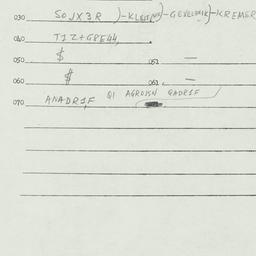 030 SOJX3R )-KLRIE(NE)-GEVELDNIK)-KREMER
040 T1Z+G8E44,
050 $ 051 —
060 $ 061 —
070 ANADR1F QI AGROJSN QADR1F